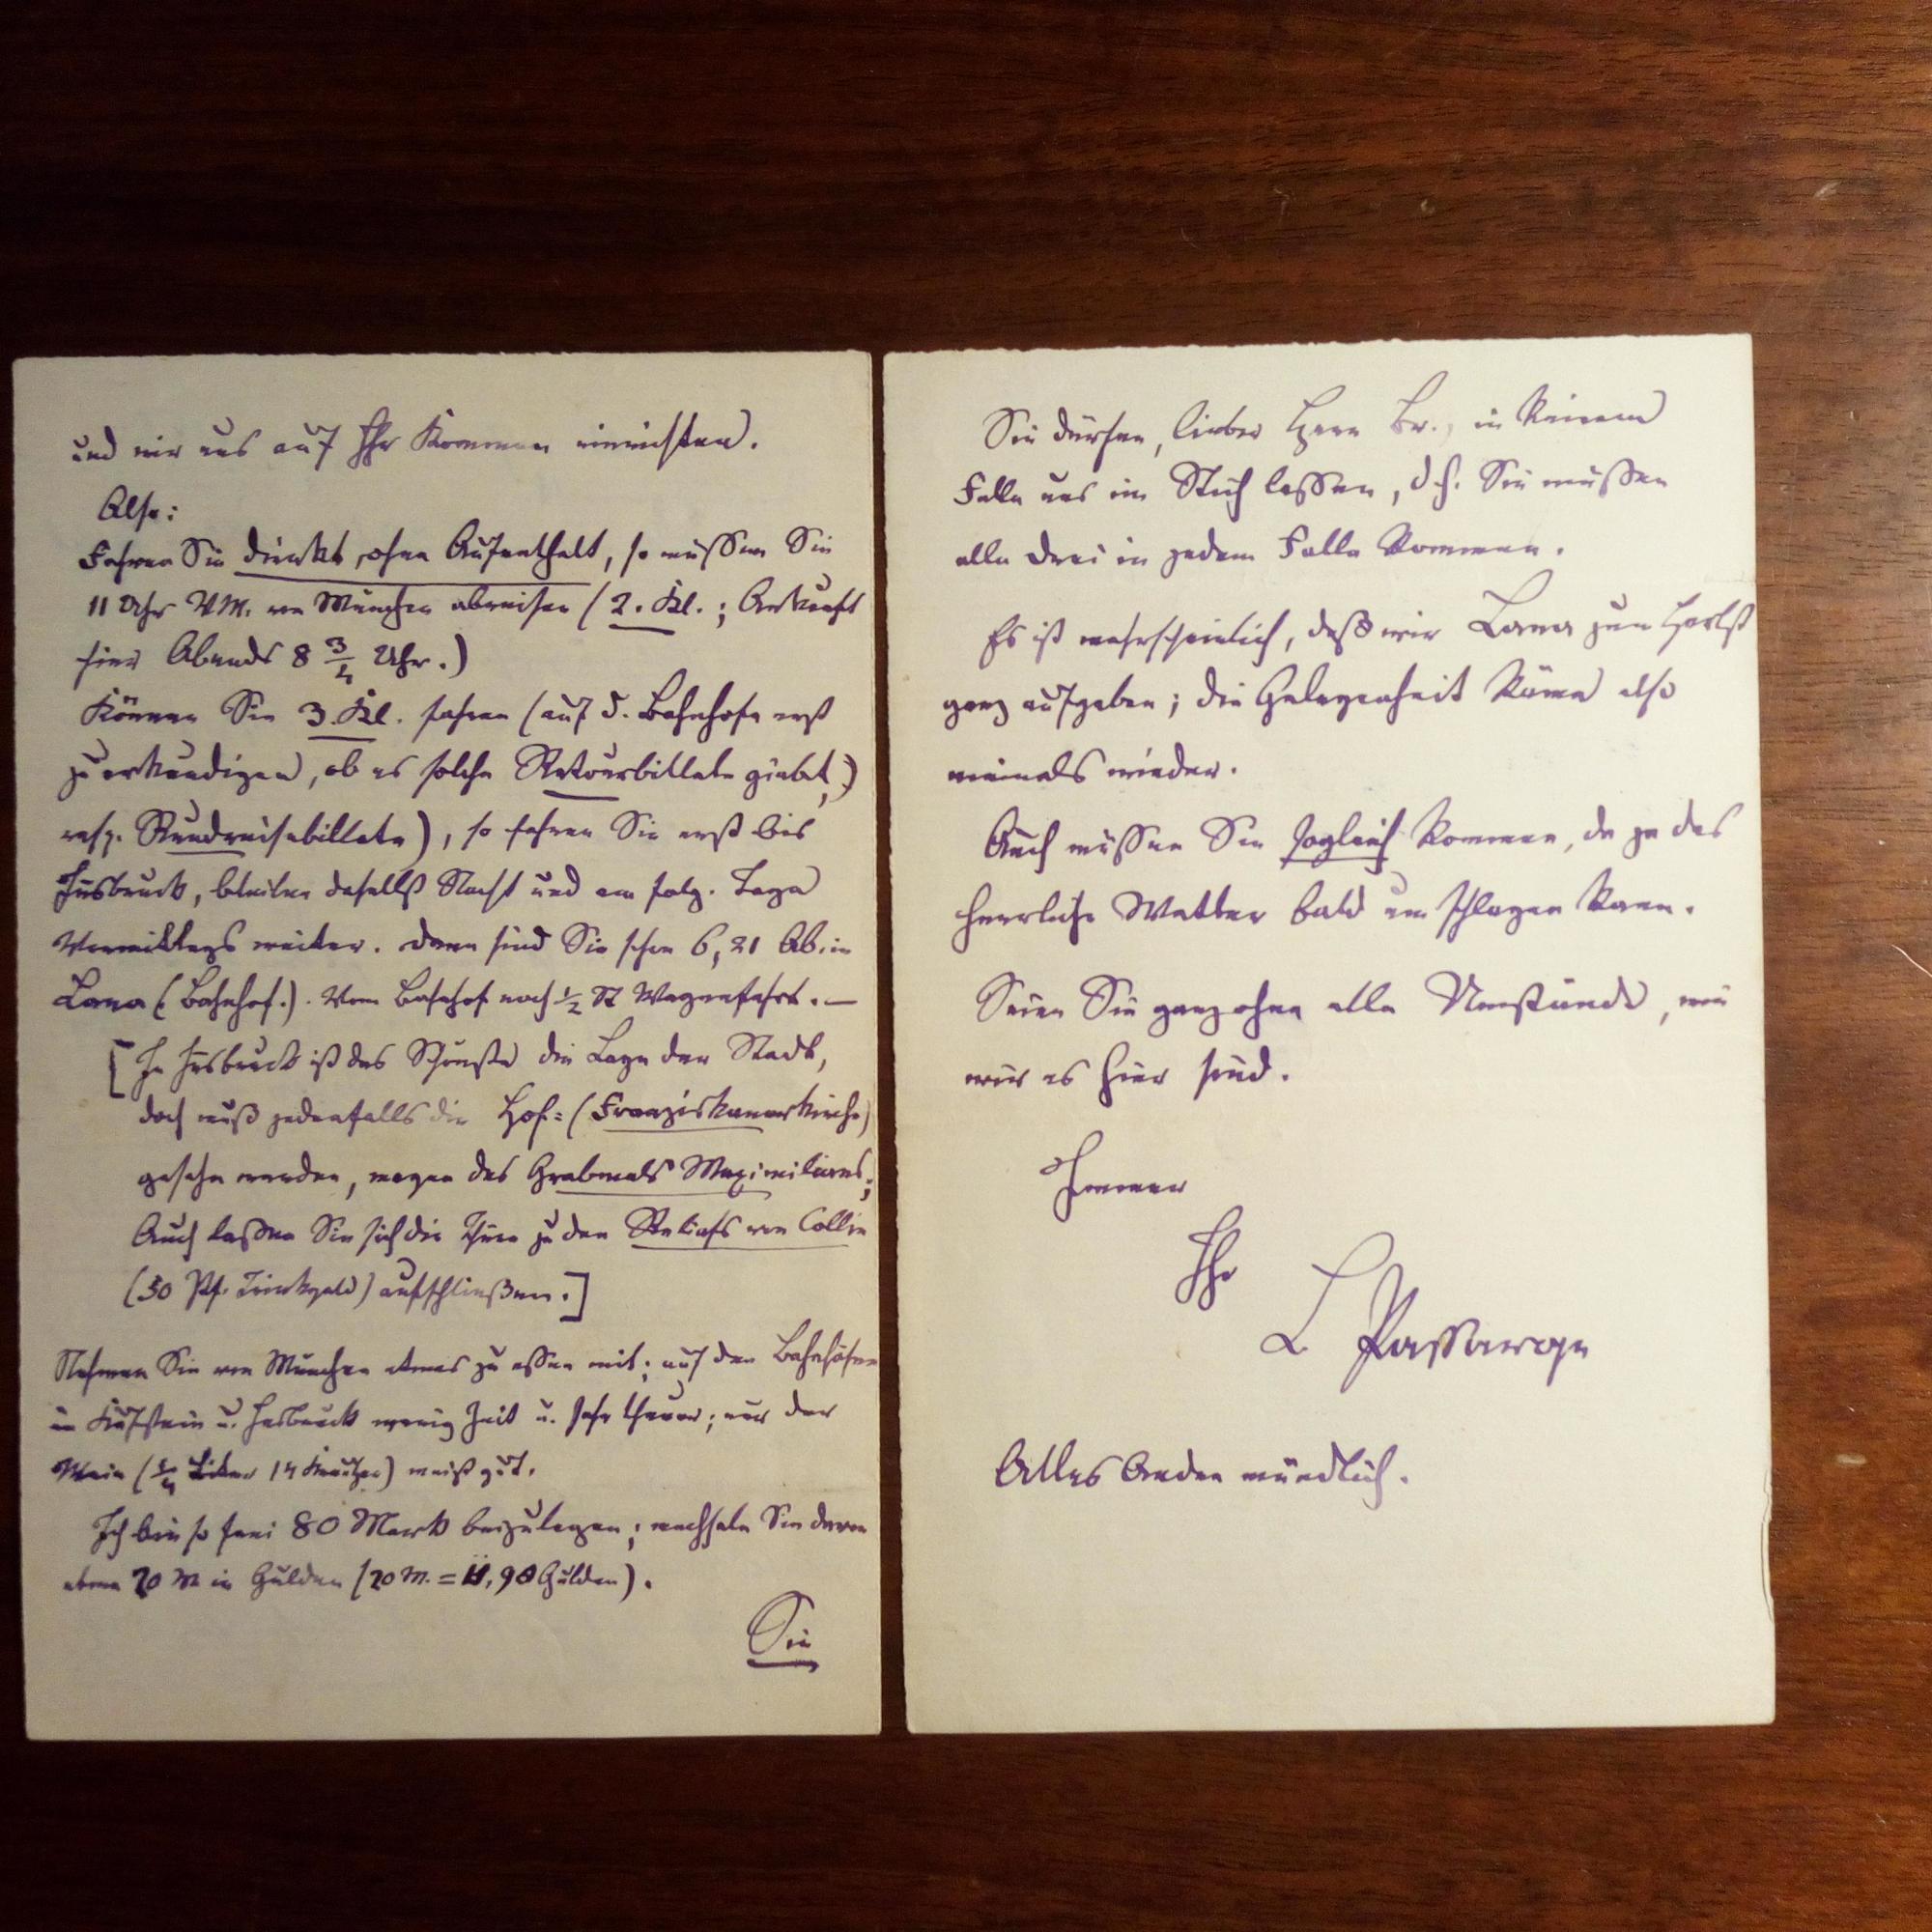 und wir uns auf Ihr Kommen einrichten.
Also:
Fahren Sie direkt, ohne Aufenthalt, so müssen Sie
11 Uhr VM. von München abreisen (2. Kl.; Ankunft
hier Abends 8 3/4 Uhr.)
Können Sie 3. Kl. fahren (auf d. Bahnhofe erst
zu erkundigen, ob es solche Retourbillete giebt,)
resp. Rundreisebillete), so fahren Sie erst bis
Insbruck, bleiben daselbst Nacht und am folg. Tage
Vormittags weiter. Dann sind Sie schon 6,21 Ab. in
Lana (Bahnhof.). Vom Bahnhof noch 1/2 St Wagenfahrt. —
[In Insbruck ist das Schönste die Lage der Stadt,
doch muß jedenfalls die Hof= (Franziskanerkirche)
gesehn werden, wegen des Grabmals Maximilians;
Auch lassen Sie sich die Thür zu den Reliefs von Collin
(50 Pf. Trinkgeld) aufschließen.]
Nehmen Sie von München etwas zu essen mit; auf den Bahnhöfen
in Kufstein u. Insbruck wenig Zeit u. sehr theuer; nur der
Wein (1/4 Liter 14 Kreutzer) meist gut.
Ich bin so frei 80 Mark beizulegen; wechseln Sie davon
etwa 20 M in Gulden (20 M. = 11,90 Gulden).
Sie
Sie dürfen, lieber Herr Br., in keinem
Falle uns im Stich lassen, d.h. Sie müssen
alle Drei in jedem Falle kommen.
Es ist wahrscheinlich, daß wir Lana zum Herbst
ganz aufgeben; die Gelegenheit käme also
niemals wieder.
Auch müssen Sie sogleich kommen, da ja das
herrliche Wetter bald umschlagen kann.
Seien Sie ganz ohne alle Umstände, wie
wir es hier sind.
Immer
Ihr
L Passarge
Alles Andere mündlich.